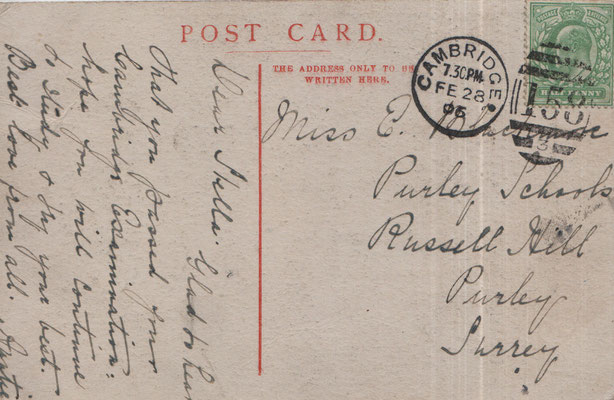 POST CARD.
THE ADDRESS ONLY TO BE
WRITTEN HERE.
CAMBRIDGE
7.30PM
FE 28
06
158
3
HALF PENNY
Miss E.
Purley Schools
Russell Hill
Purley
Surrey
Dear Stella. Glad to hear
that you passed your
Cambridge Examination:
hope you will continue
to study & try your best.
Best love from all.